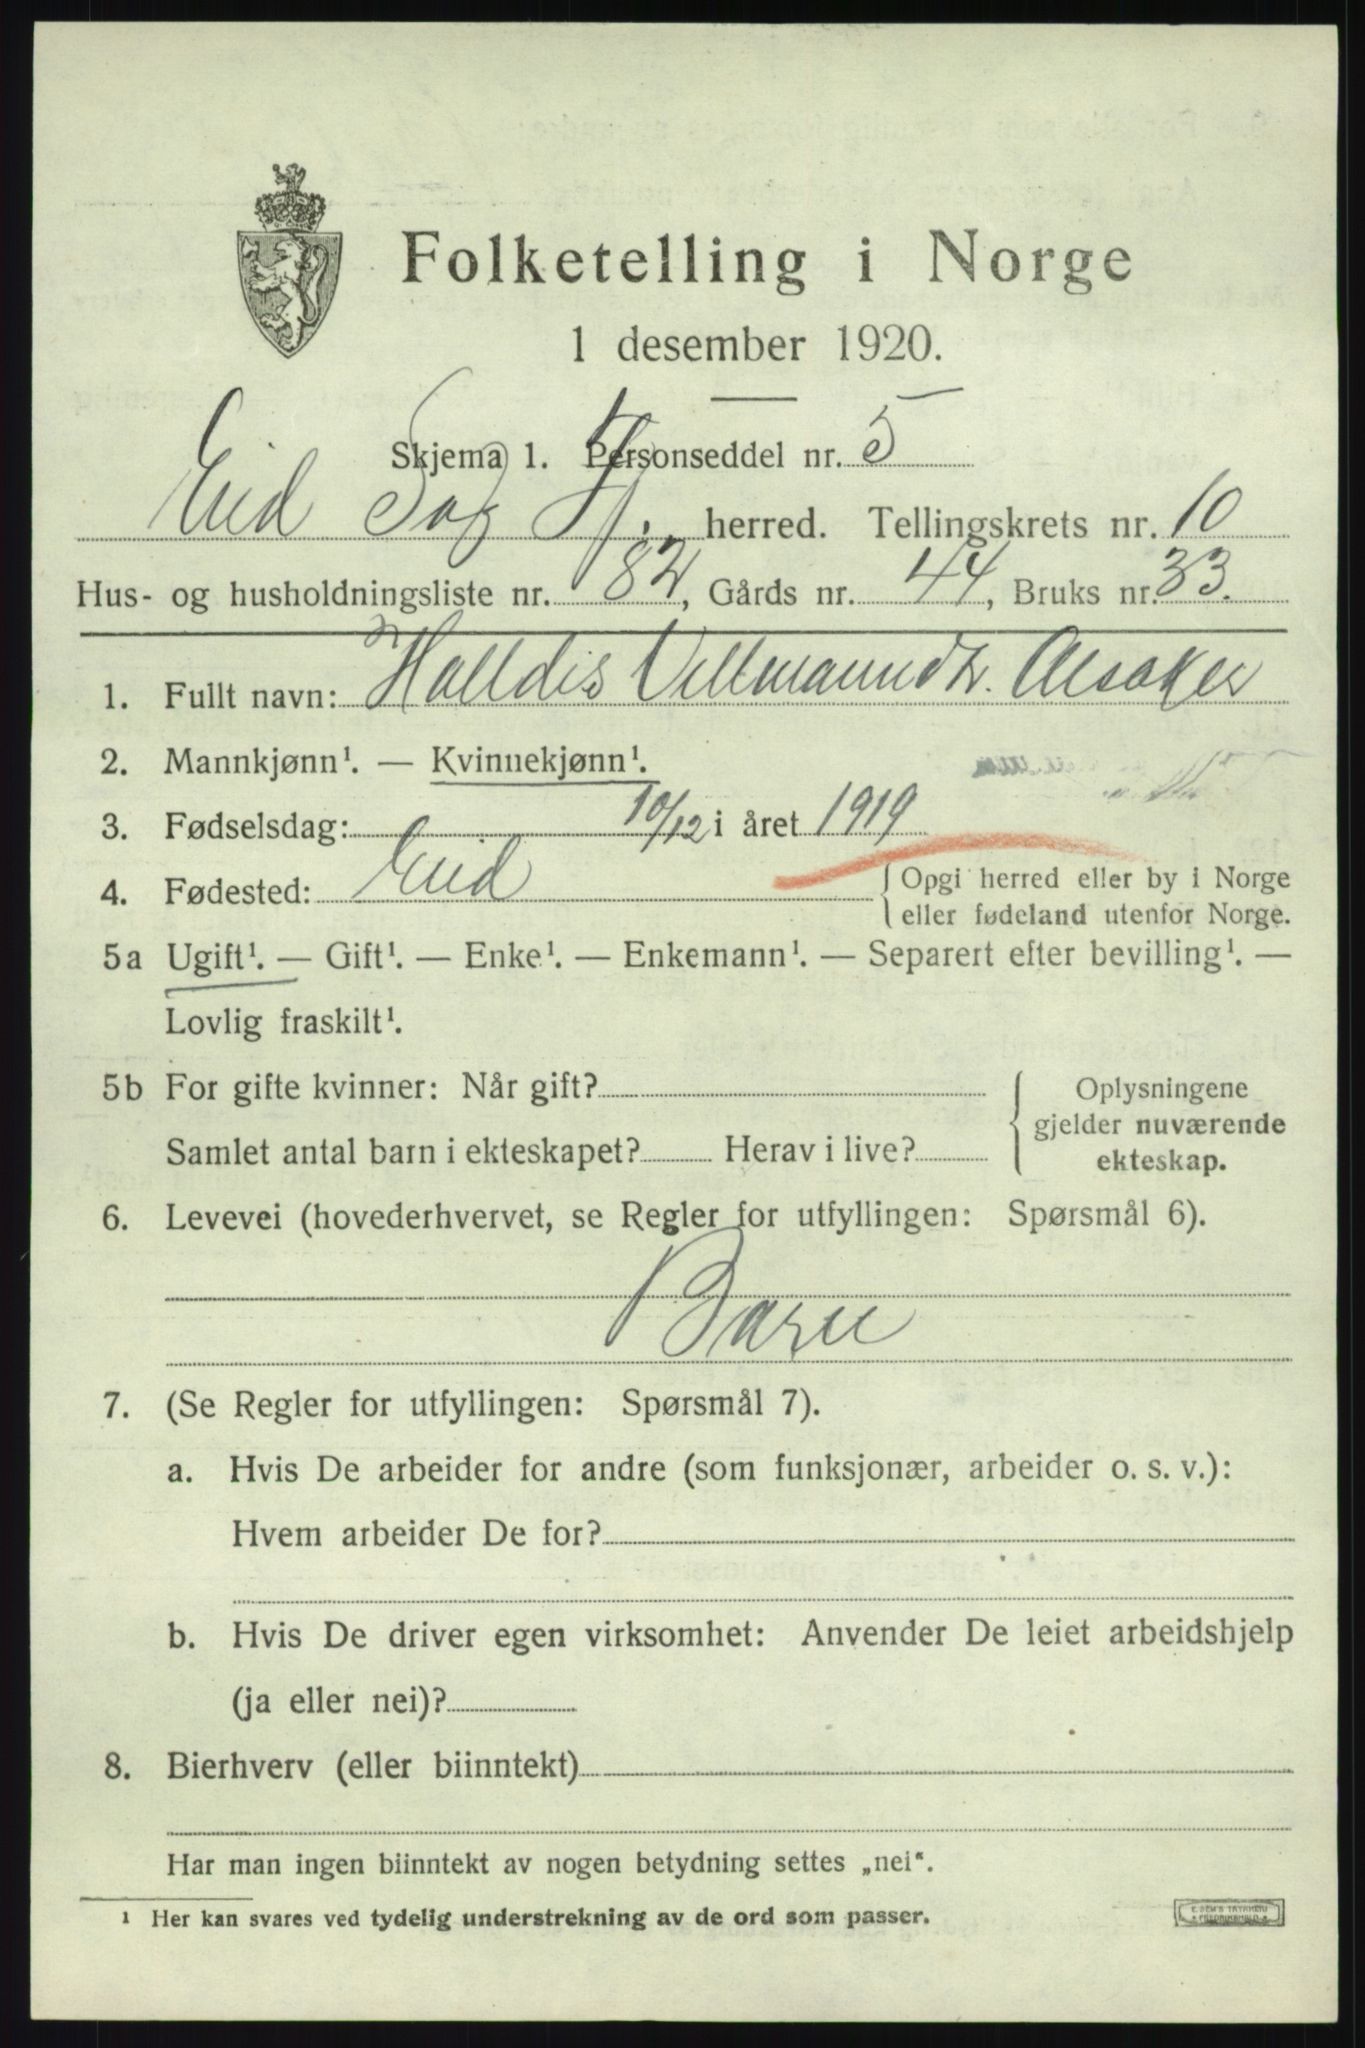 Folketelling i Norge
1 desember 1920.
Skjema 1. Personseddel nr. 5
Eid Sog Fj. herred. Tellingskrets nr. 10
Hus- og husholdningsliste nr. 82, Gårds nr. 44, Bruks nr. 33.
1. Fullt navn: Halldis Villmannndtr. Alsaker
2. Mannkjønn¹. — Kvinnekjønn¹.
3. Fødselsdag: 10/12 i året 1919
4. Fødested: Eid { Opgi herred eller by i Norge
eller fødeland utenfor Norge.
5a Ugift¹. — Gift¹. — Enke¹. — Enkemann¹. — Separert efter bevilling¹. —
Lovlig fraskilt¹.
5b For gifte kvinner: Når gift?
Samlet antal barn i ekteskapet? Herav i live?
{ Oplysningene
gjelder nuværende
ekteskap.
6. Levevei (hovederhvervet, se Regler for utfyllingen: Spørsmål 6).
Barn
7. (Se Regler for utfyllingen: Spørsmål 7).
a. Hvis De arbeider for andre (som funksjonær, arbeider o. s. v.):
Hvem arbeider De for?
b. Hvis De driver egen virksomhet: Anvender De leiet arbeidshjelp
(ja eller nei)?
8. Bierhverv (eller biinntekt)
Har man ingen biinntekt av nogen betydning settes „nei“.
¹ Her kan svares ved tydelig understrekning av de ord som passer.